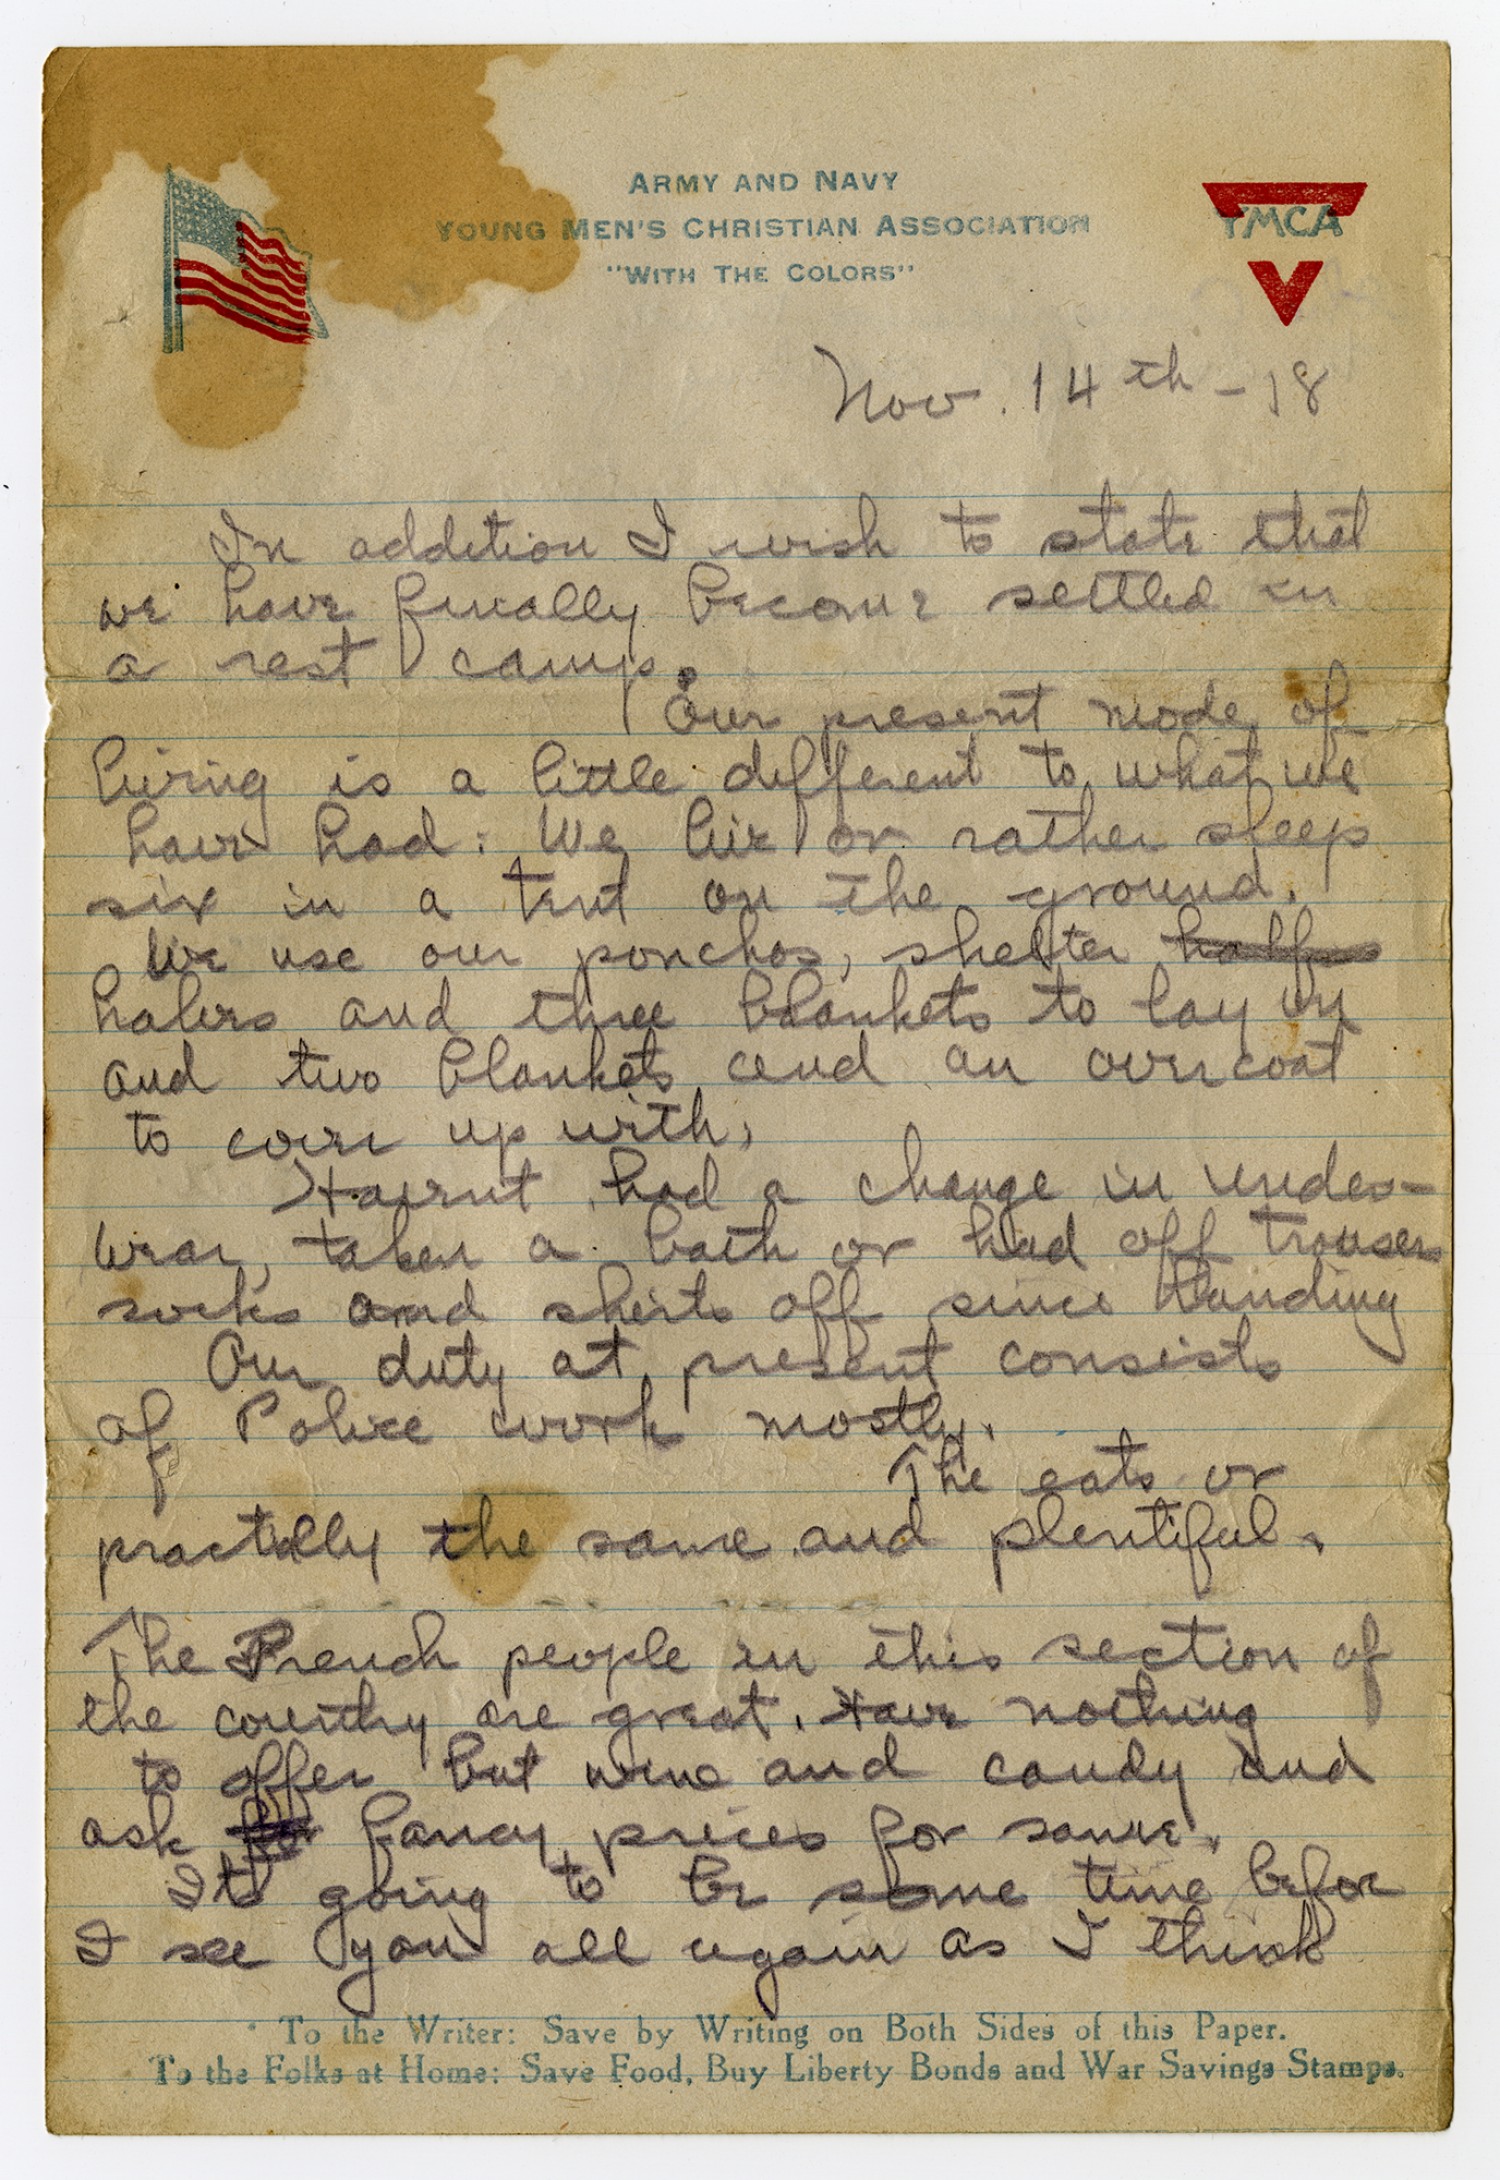 ARMY AND NAVY
YOUNG MEN'S CHRISTIAN ASSOCIATION
"WITH THE COLORS"
YMCA
Nov. 14th - 18
In addition I wish to state that
we have finally become settled in
a rest camp.
Our present mode of
living is a little different to what we
have had: We live or rather sleep
six in a tent on the ground.
We use our ponchos, shelter halfes
halvrs and three blankets to lay on
and two blankets and an overcoat
to cover up with,
Havent had a change in under-
wear, taken a bath or had off trousers
socks and shirts off since landing
Our duty at present consists
of Police work mostly.
The eats or
practally the same and plentiful.
The French people in this section of
the country are great. Have nothing
to offer but wine and candy and
ask for fancy prices for same.
Its going to be some time before
I see you all again as I think
To the Writer: Save by Writing on Both Sides of this Paper.
To the Folks at Home: Save Food, Buy Liberty Bonds and War Savings Stamps.